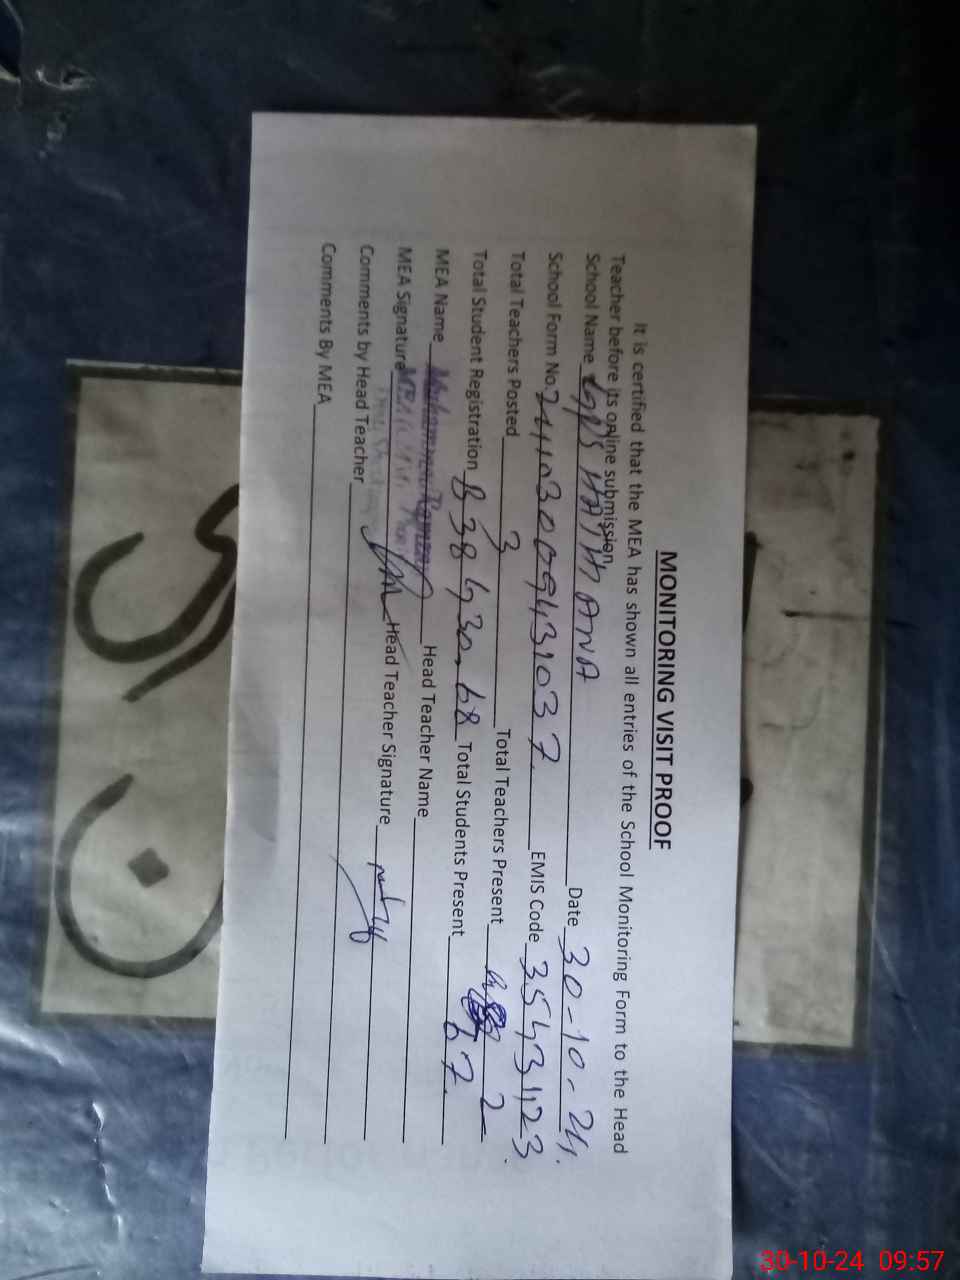 MONITORING VISIT PROOF
It is certified that the MEA has shown all entries of the School Monitoring Form to the Head
Teacher before its online submission.
School Name GGPS Date 30-10-24.
School Form No. EMIS Code 35431123.
Total Teachers Posted 3 Total Teachers Present 2
Total Student Registration B 38 G 30 = 68 Total Students Present 67.
MEA Name Muhammad Rameez Head Teacher Name
MEA Signature Head Teacher Signature
Comments by Head Teacher
Comments By MEA
30-10-24 09:57